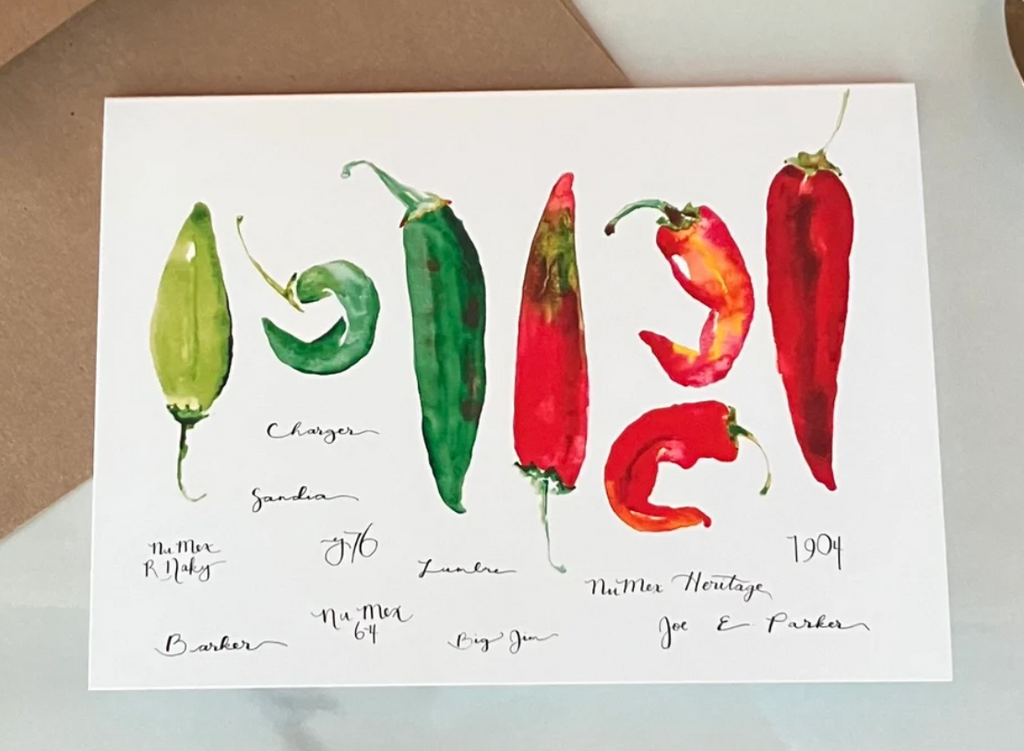 Charger
Sandia
NuMex
R Naky
y76
Lumbre
1904
NuMex Heritage
NuMex
64
Joe E Parker
Barker
Big Jim